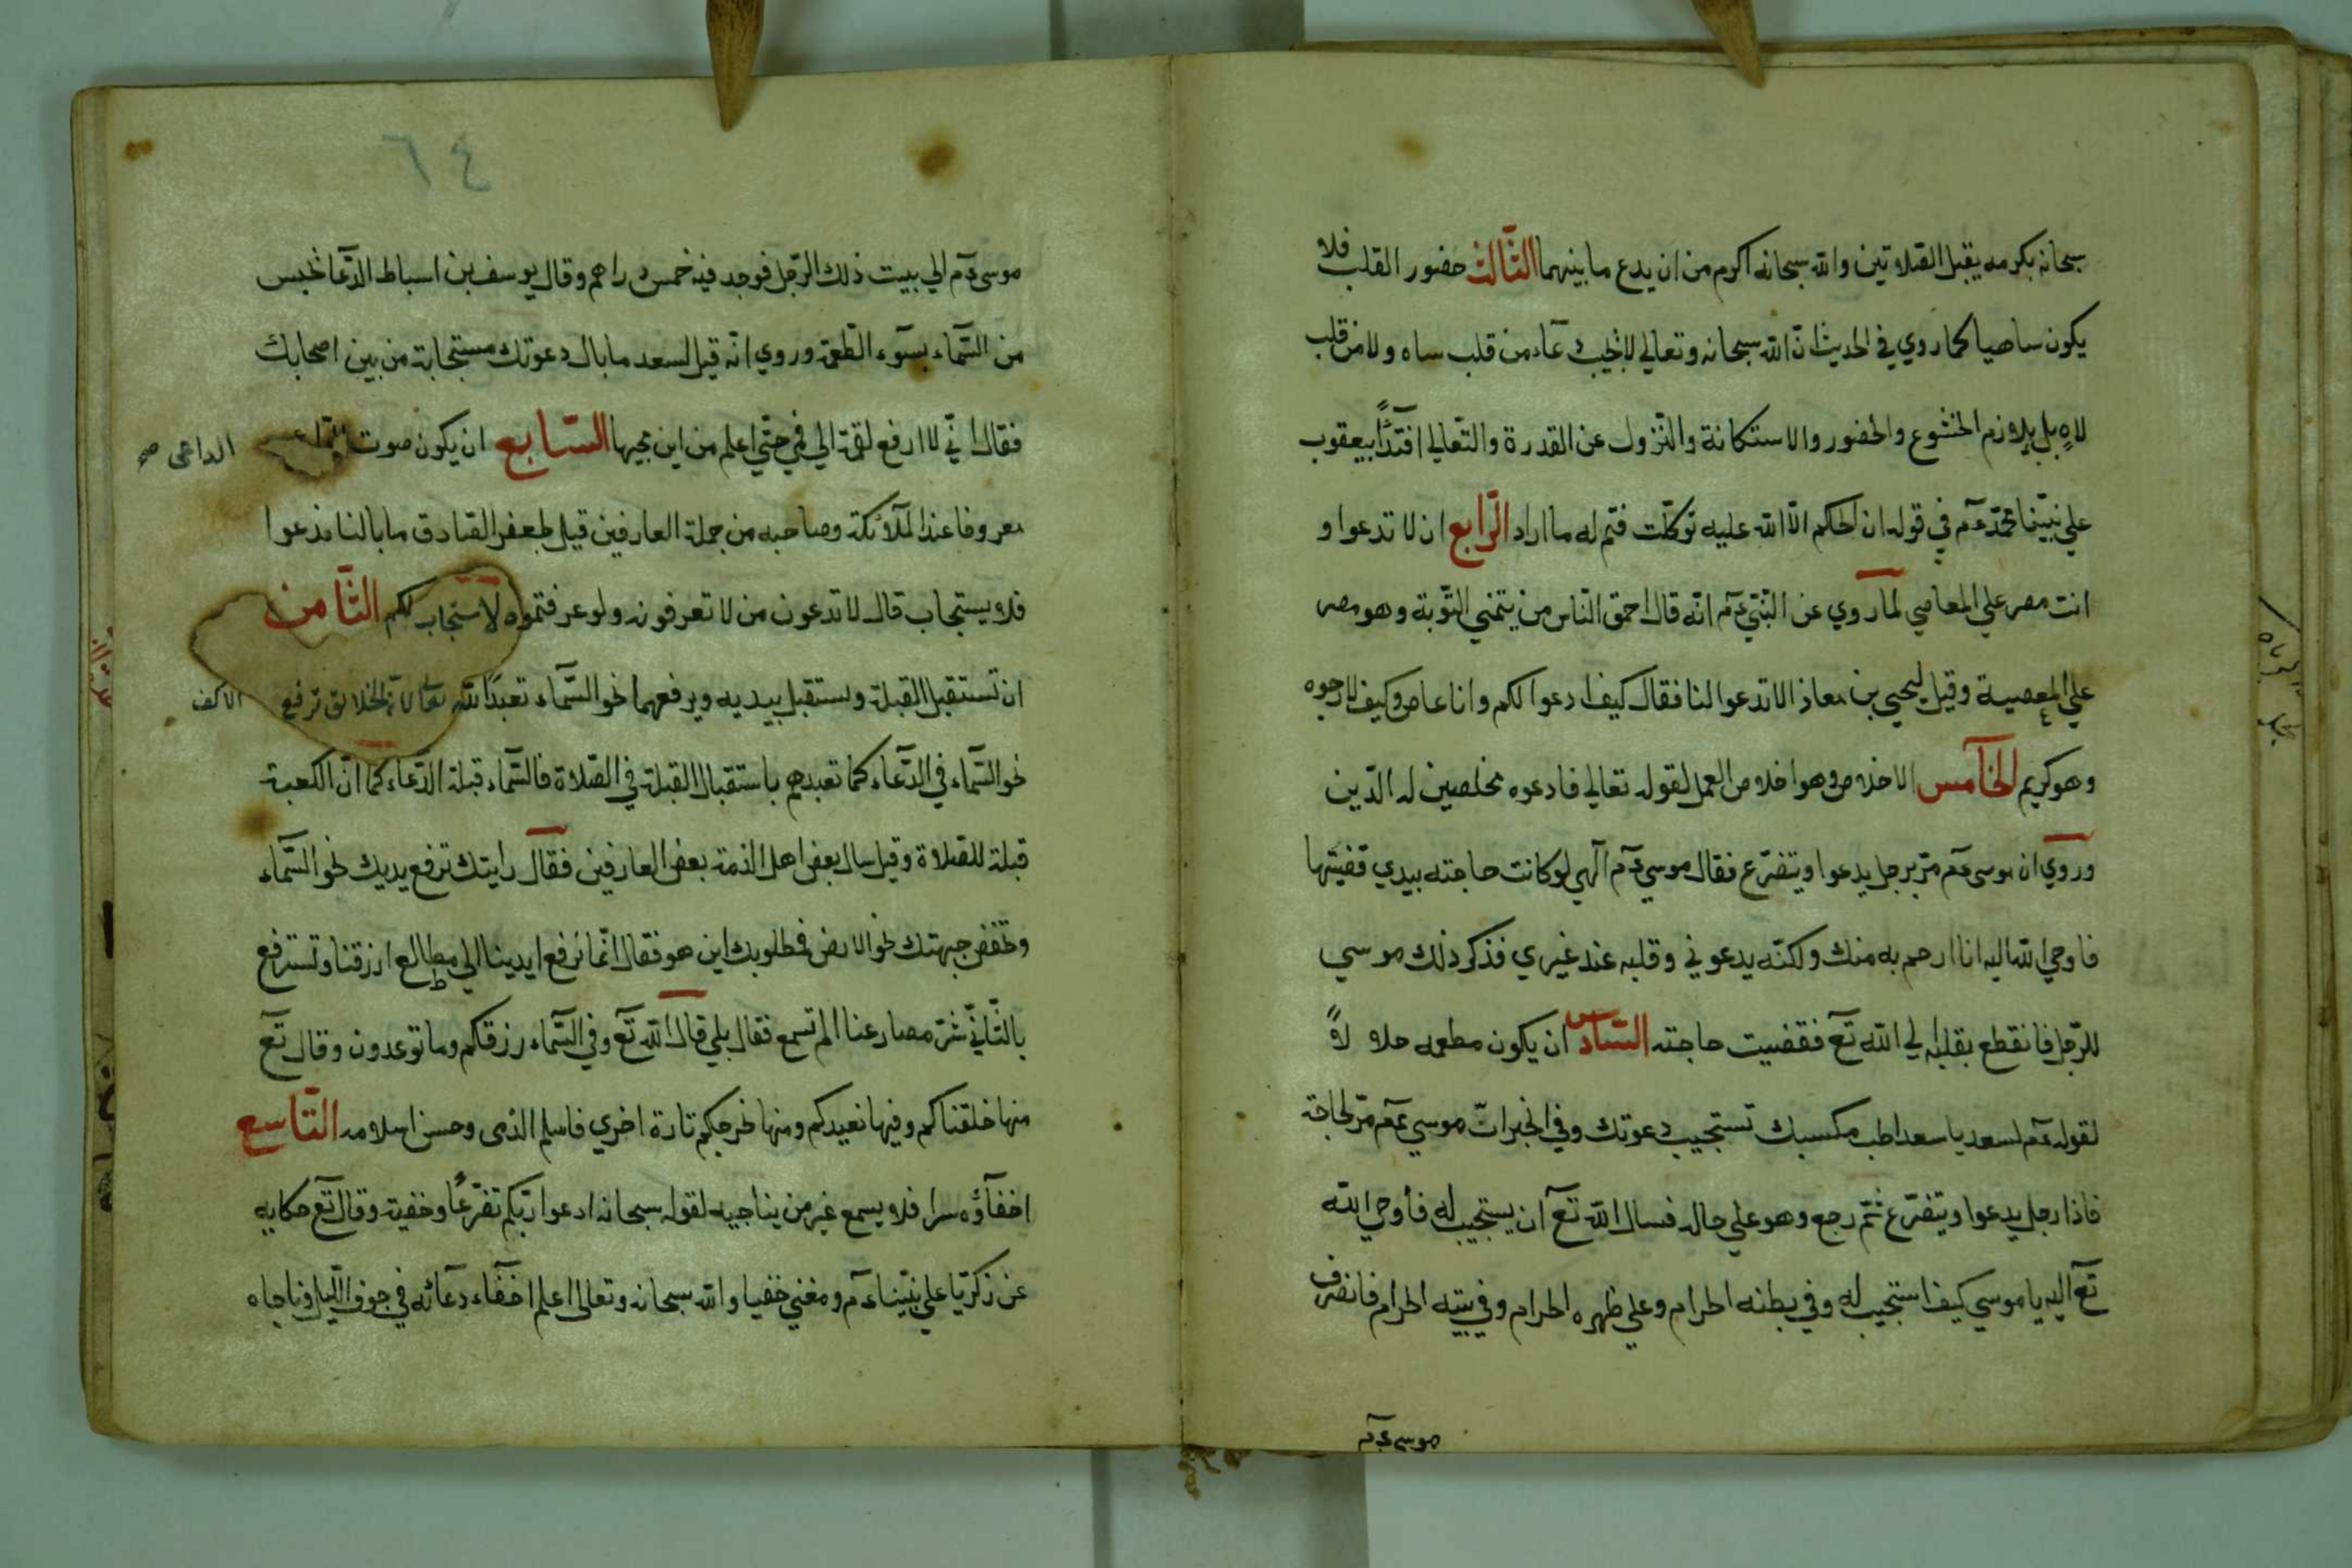 سبحانه بكرمه يقبل الصّلاتين والله سبحانه اكرم من ان يدع ما بينهما الثّالث حضور القلب فلا
يكون ساهيا كما روي في الحديث انّ الله سبحانه وتعالي لا يجيب دعآء من قلب ساه ولا من قلب
لاهٍ بل يلازم الخشوع والحضور والاستكانة والنّزول عن القدرة والتّعالي اقتدًآ بيعقوب
علي نبيّنا محمّد عم في قوله ان الحكم الّا الله عليه توكّلت فتم له ما اراد الرّابع ان لا تدعوا و
انت مصر علي المعاصي لما روي عن النّبيّ عم انّه قال احمق النّاس من يتمني التّوبة وهو مصر
علي المعصية وقيل ليحيي بن معاذ الا تدعوا لنا فقال كيف ادعوا لكم وانا عاص وكيف لا ارجوه
وهو كريم الخآمس الاخلاص وهو اخلاص العمل لقوله تعالي فادعوه مخلصين له الدّين
وروي ان موسى عم مرّ برجل يدعوا ويتضرّع فقال موسي عم آلهي لو كانت حاجته بيدي قضيتها
فاوحي الله اليه انا ارحم به منك ولكنّه يدعوني وقلبه عند غيري فذكر ذلك موسي
للرّجل فانقطع بقلبه الي الله تع فقضيت حاجته السّادس ان يكون مطعمه حلا لاً
لقوله عم لسعد يا سعد اطب مكسبك تستجيب دعوتك وفي الخبر انّ موسي عم مرّ لحاجة
فاذا رجل يدعوا ويتضرّع ثمّ رجع وهو علي حاله فسال الله تع ان يستجيب له فأوحي الله
تع اليه يا موسي كيف استجيب له وفي بطنه الحرام وعلي ظهره الحرام وفي بيته الحرام فانصرف
موسى عم
٦٤
موسى عم الي بيت ذلك الرّجل فوجد فيه خمس دراهم وقال يوسف بن اسباط الدّعا يحبس
من السّماء بسوء الطّعمة وروي انه قيل لسعد ما بال دعوتك مستجابة من بين اصحابك
فقال انّي لا ارفع لقمة الي في حتّي اعلم من اين مجيها السّابع ان يكون صوت
الداعى صح
معروفا عند الملآئكة وصاحبه من جملة العارفين قيل لجعفر الصّادق ما بالنا ندعوا
فلا يستجاب قال لا تدعون من لا تعرفونه ولو عرفتموه لاستجاب لكم الثّامن
ان تستقبل القبلة وتستقبل بيديه ويرفعهما نحو السّماء تعبدًا لله الخلائق ترفع
الاكف
نحو السّماء في الدّعآء كما تعبدهم باستقبال القبلة في الصّلاة فالسّماء قبلة الدّعاء كما انّ الكعبة
قبلة للصّلاة وقيل سال بعض اهل الذمة بعض العارفين فقال رايتك ترفع يديك نحو السّماء
وتخفض جبهتك نحو الارض فمطلوبك اين هو فقال انّما نرفع ايدينا الي مطالع ارزقنا وتسترفع
بالثّاني شرّ مصارعنا الم تسمع فقال بلي قال الله تع وفي السّماء رزقكم وما توعدون وقال تع
منها خلقناكم وفيها نعيدكم ومنها نخرجكم تارة اخري فاسلم الذمى وحسن اسلامه التّاسع
اخفآؤه سرا فلا يسمع غير من يناجيه لقوله سبحانه ادعوا ربّكم تضرّعًا وخفية وقال تع حكايه
عن زكريّا علي نبيّنا عم خفيا والله سبحانه وتعالى اعلم اخفآء دعآئه في جوف اللّيل وناجاه